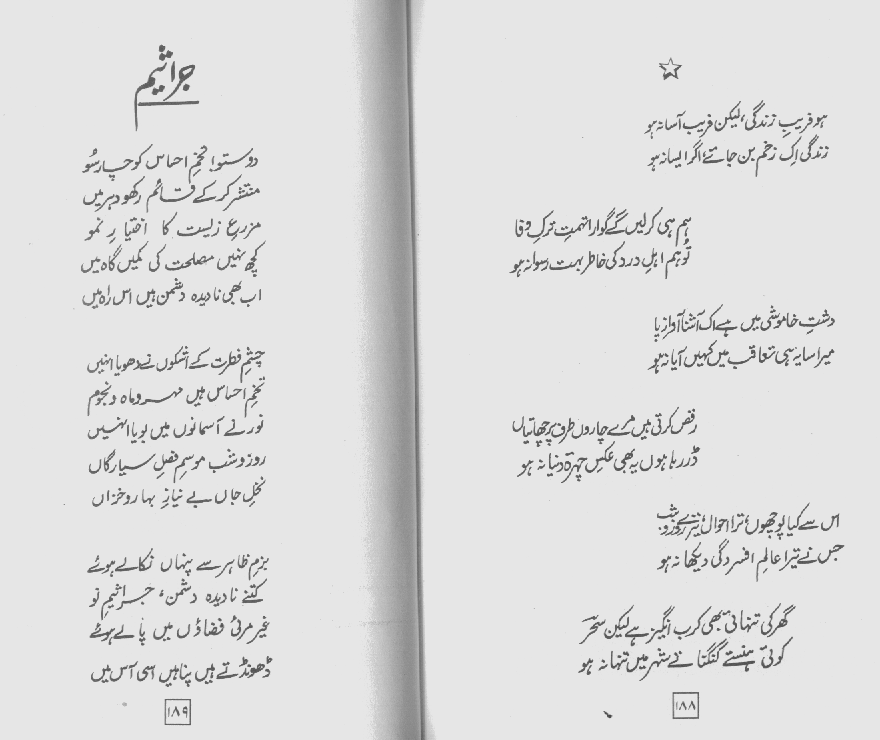 ہو فریبِ زندگی، لیکن فریب آسا نہ ہو
زندگی اِک زخم بن جائے، اگر ایسا نہ ہو
ہم ہی کر لیں گے گوارا تہمتِ ترکِ وفا
تُو ہم اہلِ درد کی خاطر بہت رسوا نہ ہو
دشتِ خاموشی میں ہے اک آشنا آوازِ پا
میرا سایہ ہی تعاقب میں کہیں آیا نہ ہو
رقص کرتی ہیں مرے چاروں طرف پرچھائیاں
ڈر رہا ہوں یہ بھی عکسِ چہرۂ دنیا نہ ہو
اس سے کیا پوچھوں، ترا احوال، تیرے روز و شب
جس نے تیرا عالمِ افسردگی دیکھا نہ ہو
گھر کی تنہائی بھی کرب انگیز ہے لیکن سحرؔ
کوئی ہنستے گنگناتے شہر میں تنہا نہ ہو
۱۸۸
جراثیم
دوستو! تخمِ احساس کو چار سُو
منتشر کر کے قائم رکھو دہر میں
مزرعِ زیست کا اختیارِ نمو
کچھ نہیں مصلحت کی کمیں گاہ میں
اب بھی نادیدہ دشمن ہیں اس راہ میں
چشمِ فطرت کے اشکوں نے دھویا انہیں
تخمِ احساس ہیں مہر و ماہ و نجوم
نور نے آسمانوں میں بویا انہیں
روز و شب موسمِ فصلِ سیارگاں
نخلِ جاں بے نیازِ بہار و خزاں
بزمِ ظاہر سے پنہاں نکالے ہوئے
کتنے نادیدہ دشمن، جراثیمِ نو
غیر مرئی فضاؤں میں پالے ہوئے
ڈھونڈتے ہیں پناہیں اسی آس میں
۱۸۹